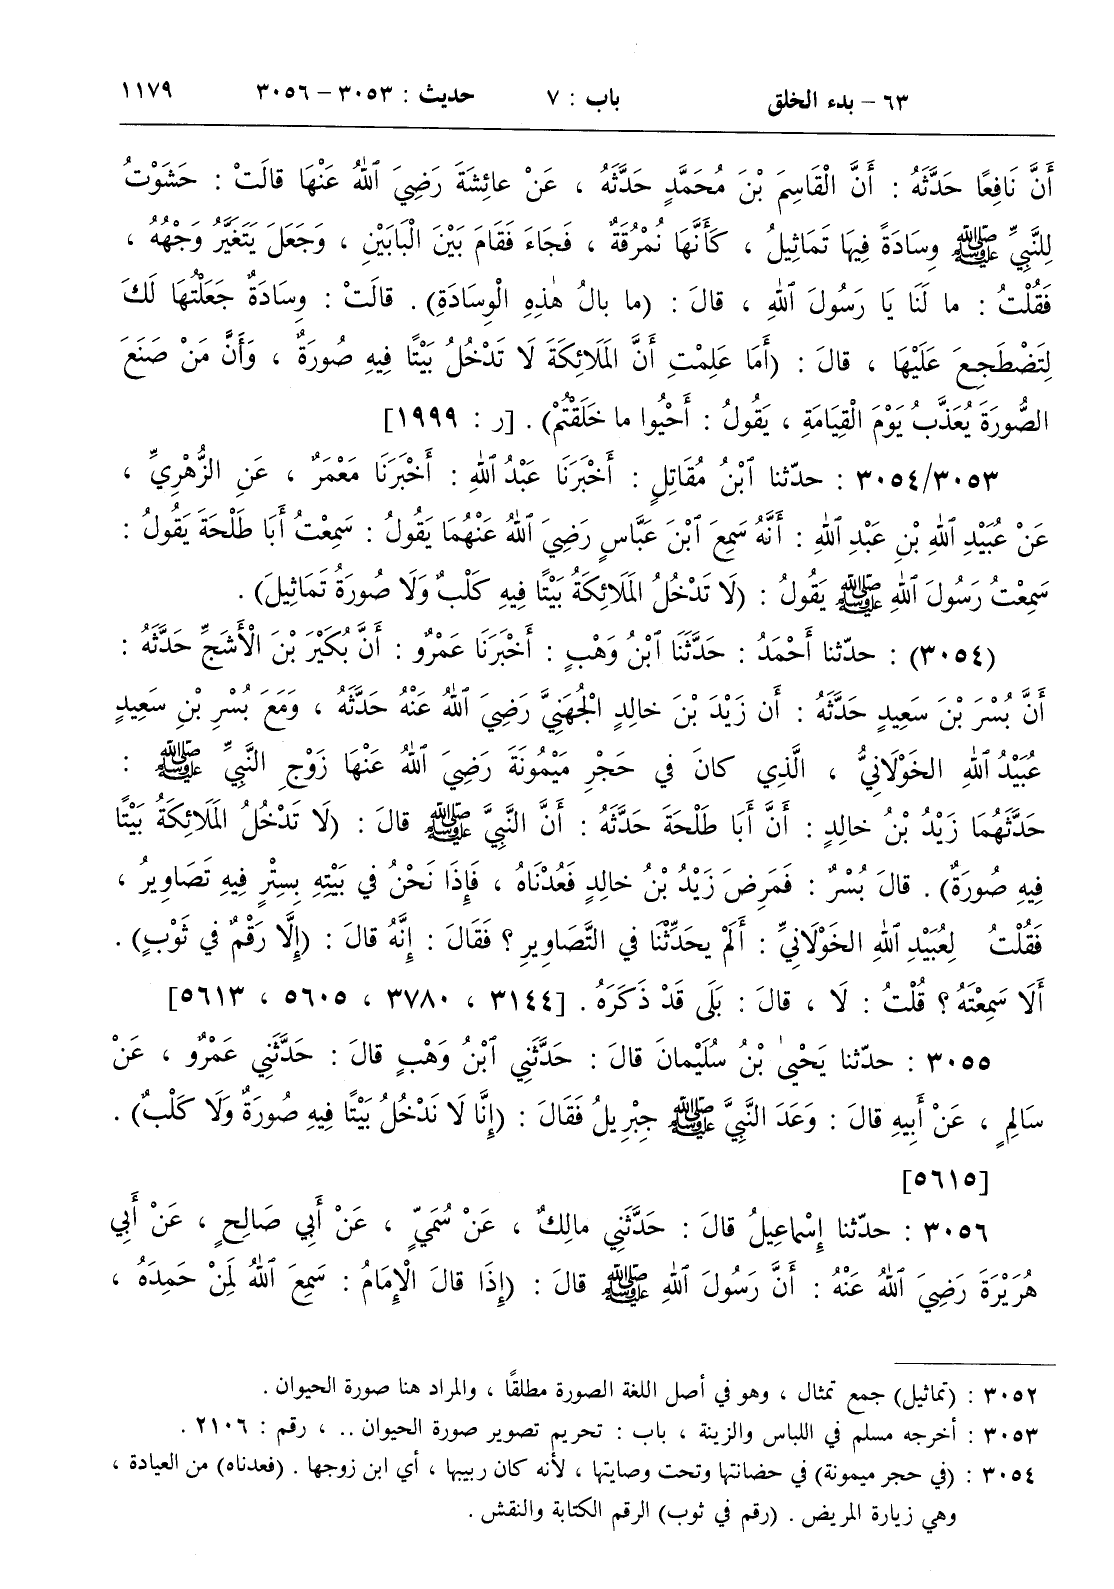 ٦٣ – بدء الخلق باب : ٧ حديث : ٣٠٥٣ – ٣٠٥٦ ١١٧٩
أَنَّ نَافِعًا حَدَّثَهُ : أَنَّ الْقَاسِمَ بْنَ مُحَمَّدٍ حَدَّثَهُ ، عَنْ عائِشَةَ رَضِيَ ٱللهُ عَنْهَا قالَتْ : حَشَوْتُ
لِلنَّبِيِّ ﷺ وِسَادَةً فِيهَا تَمَاثِيلُ ، كَأَنَّهَا نُمْرُقَةٌ ، فَجَاءَ فَقَامَ بَيْنَ الْبَابَيْنِ ، وَجَعَلَ يَتَغَيَّرُ وَجْهُهُ ،
فَقُلْتُ : ما لَنَا يَا رَسُولَ ٱللهِ ، قالَ : (ما بالُ هٰذِهِ الْوِسَادَةِ) . قالَتْ : وِسَادَةٌ جَعَلْتُهَا لَكَ
لِتَضْطَجِعَ عَلَيْهَا ، قالَ : (أَمَا عَلِمْتِ أَنَّ المَلَائِكَةَ لَا تَدْخُلُ بَيْتًا فِيهِ صُورَةٌ ، وَأَنَّ مَنْ صَنَعَ
الصُّورَةَ يُعَذَّبُ يَوْمَ الْقِيَامَةِ ، يَقُولُ : أَحْيُوا ما خَلَقْتُمْ) . [ر : ١٩٩٩]
٣٠٥٤/٣٠٥٣ : حدّثنا ٱبْنُ مُقَاتِلٍ : أَخْبَرَنَا عَبْدُ ٱللهِ : أَخْبَرَنَا مَعْمَرٌ ، عَنِ الزُّهْرِيِّ ،
عَنْ عُبَيْدِ ٱللهِ بْنِ عَبْدِ ٱللهِ : أَنَّهُ سَمِعَ ٱبْنَ عَبَّاسٍ رَضِيَ ٱللهُ عَنْهُمَا يَقُولُ : سَمِعْتُ أَبَا طَلْحَةَ يَقُولُ :
سَمِعْتُ رَسُولَ ٱللهِ ﷺ يَقُولُ : (لَا تَدْخُلُ المَلَائِكَةُ بَيْتًا فِيهِ كَلْبٌ وَلَا صُورَةُ تَمَاثِيلَ) .
(٣٠٥٤) : حدّثنا أَحْمَدُ : حَدَّثَنَا ٱبْنُ وَهْبٍ : أَخْبَرَنَا عَمْرٌو : أَنَّ بُكَيْرَ بْنَ الْأَشَجِّ حَدَّثَهُ :
أَنَّ بُسْرَ بْنَ سَعِيدٍ حَدَّثَهُ : أَن زَيْدَ بْنَ خالِدٍ الجُهَنِيَّ رَضِيَ ٱللهُ عَنْهُ حَدَّثَهُ ، وَمَعَ بُسْرِ بْنِ سَعِيدٍ
عُبَيْدُ ٱللهِ الخَوْلَانِيُّ ، الَّذِي كانَ في حَجْرِ مَيْمُونَةَ رَضِيَ ٱللهُ عَنْهَا زَوْجِ النَّبِيِّ ﷺ :
حَدَّثَهُمَا زَيْدُ بْنُ خالِدٍ : أَنَّ أَبَا طَلْحَةَ حَدَّثَهُ : أَنَّ النَّبِيَّ ﷺ قالَ : (لَا تَدْخُلُ المَلَائِكَةُ بَيْتًا
فِيهِ صُورَةٌ) . قالَ بُسْرٌ : فَمَرِضَ زَيْدُ بْنُ خالِدٍ فَعُدْنَاهُ ، فَإِذَا نَحْنُ في بَيْتِهِ بِسِتْرٍ فِيهِ تَصَاوِيرُ ،
فَقُلْتُ لِعُبَيْدِ ٱللهِ الخَوْلَانِيِّ : أَلَمْ يحَدِّثْنَا في التَّصَاوِيرِ ؟ فَقَالَ : إِنَّهُ قالَ : (إِلَّا رَقْمٌ في ثَوْبٍ) .
أَلَا سَمِعْتَهُ ؟ قُلْتُ : لَا ، قالَ : بَلَى قَدْ ذَكَرَهُ . [٣١٤٤ ، ٣٧٨٠ ، ٥٦٠٥ ، ٥٦١٣]
٣٠٥٥ : حدّثنا يَحْيىٰ بْنُ سُلَيْمانَ قالَ : حَدَّثَنِي ٱبْنُ وَهْبٍ قالَ : حَدَّثَنِي عَمْرٌو ، عَنْ
سَالِمٍ ، عَنْ أَبِيهِ قالَ : وَعَدَ النَّبِيَّ ﷺ جِبْرِيلُ فَقَالَ : (إِنَّا لَا نَدْخُلُ بَيْتًا فِيهِ صُورَةٌ وَلَا كَلْبٌ) .
[٥٦١٥]
٣٠٥٦ : حدّثنا إِسْماعِيلُ قالَ : حَدَّثَنِي مالِكٌ ، عَنْ سُمَيٍّ ، عَنْ أَبِي صَالِحٍ ، عَنْ أَبِي
هُرَيْرَةَ رَضِيَ ٱللهُ عَنْهُ : أَنَّ رَسُولَ ٱللهِ ﷺ قالَ : (إِذَا قالَ الْإِمَامُ : سَمِعَ ٱللهُ لِمَنْ حَمِدَهُ ،
٣٠٥٢ : (تماثيل) جمع تمثال ، وهو في أصل اللغة الصورة مطلقًا ، والمراد هنا صورة الحيوان .
٣٠٥٣ : أخرجه مسلم في اللباس والزينة ، باب : تحريم تصوير صورة الحيوان .. ، رقم : ٢١٠٦ .
٣٠٥٤ : (في حجر ميمونة) في حضانتها وتحت وصايتها ، لأنه كان ربيبها ، أي ابن زوجها . (فعدناه) من العيادة ،
وهي زيارة المريض . (رقم في ثوب) الرقم الكتابة والنقش .